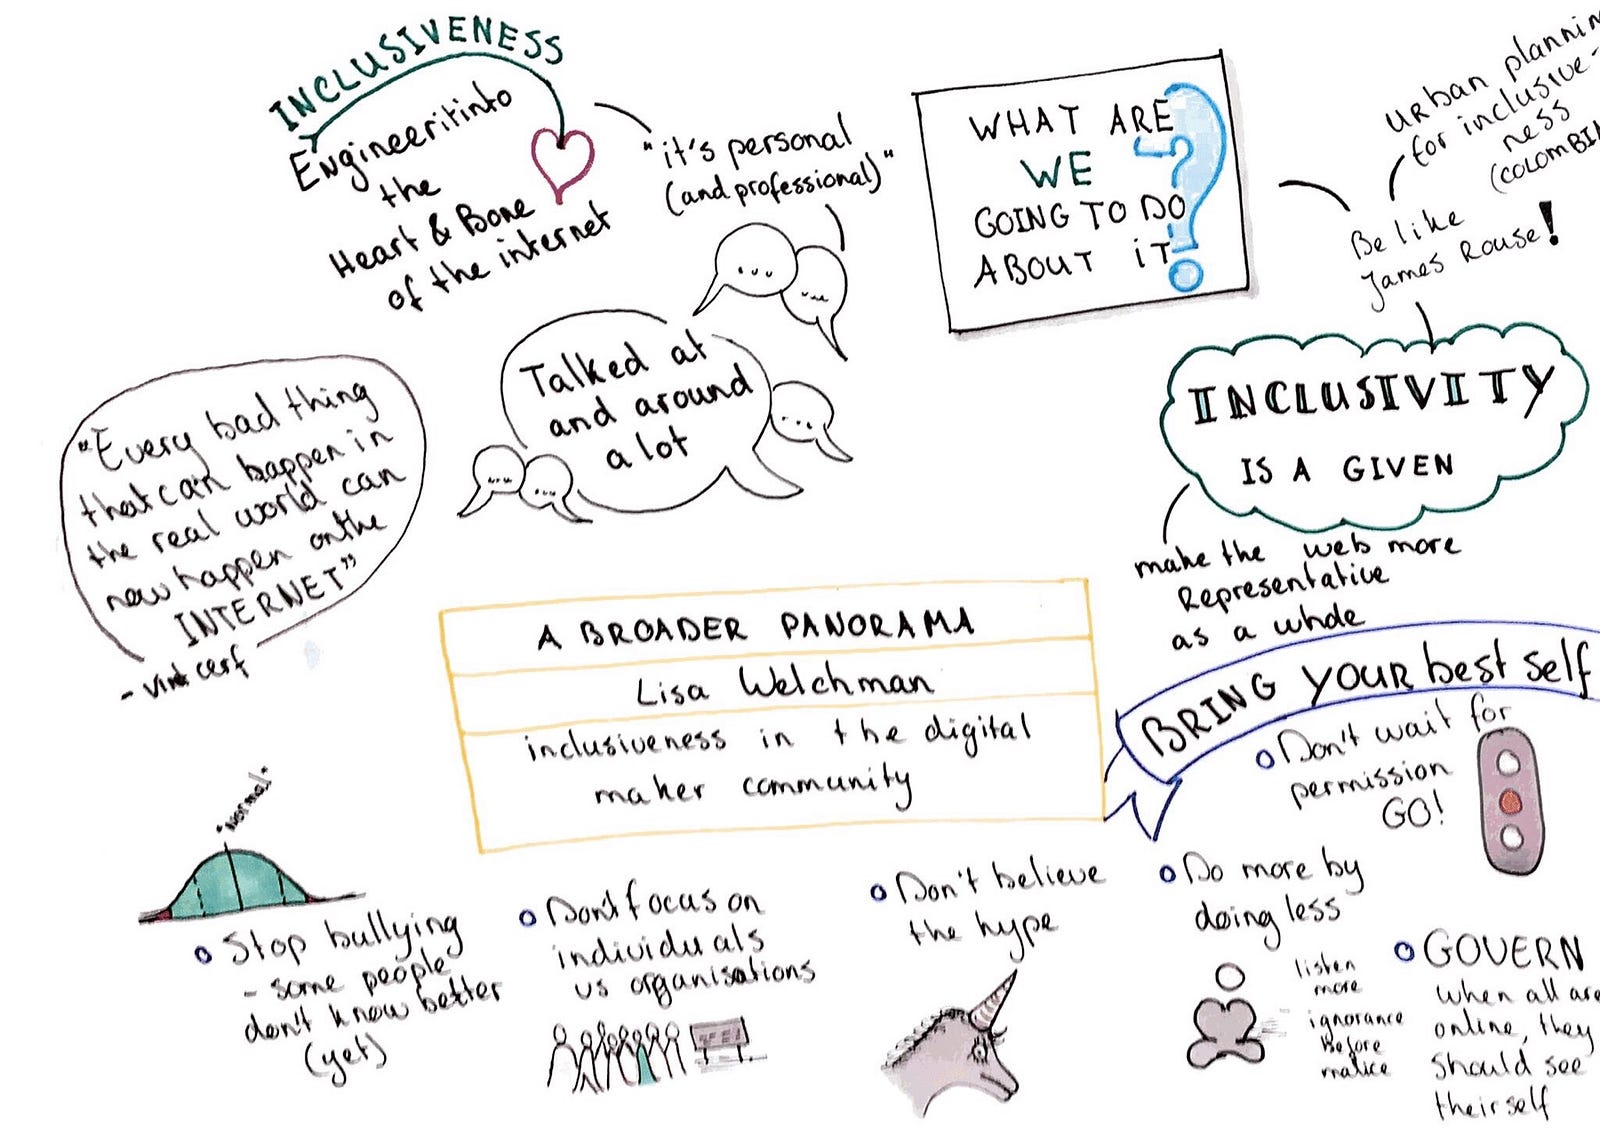 INCLUSIVENESS
Engineeritinto
the
Heart & Bone
of the internet
"it's personal
(and professional)"
WHAT ARE
WE
GOING TO DO
ABOUT iT
?
Urban planning
for inclusive-
ness
(COLOMBIA
Be like
James Rouse!
INCLUSIVITY
IS A GIVEN
make the web more
Representative
as a whole
Talked at
and around
a lot
"Every bad thing
that can happen in
the real world can
now happen onthe
INTERNET"
- Vint cerf
A BROADER PANORAMA
Lisa Welchman
inclusiveness in the digital
maker community
BRING YOUR best self
Don't wait for
permission
GO!
"Normal"
Stop bullying
- some people
don't know better
(yet)
Don't focus on
individuals
vs organisations
Don't believe
the hype
Do more by
doing less
listen
more
ignorance
Before
malice
GOVERN
when all are
online, they
should see
their self